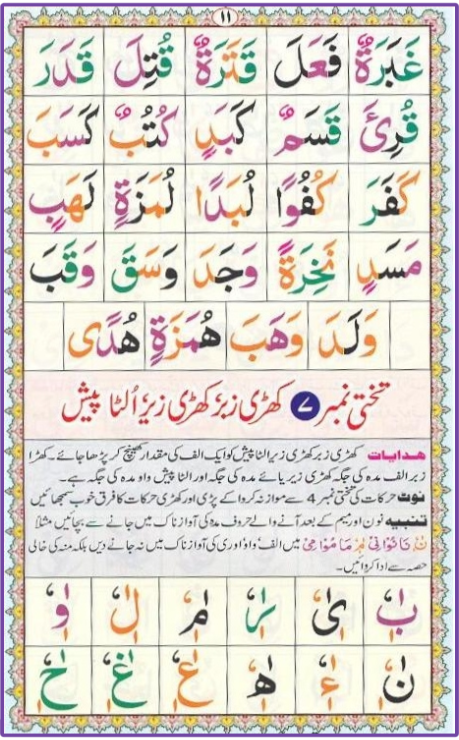 ۱۱
غَبَرَةٌ فَعَلَ قَتَرَةٌ قُتِلَ قَدَرَ
قُرِئَ قَسَمٌ كَبَدٍ كُتُبٌ كَسَبَ
كَفَرَ كُفُوًا لُبَدًا لُمَزَةٍ لَهَبٍ
مَسَدٍ نَخِرَةً وَجَدَ وَسَقَ وَقَبَ
وَلَدَ وَهَبَ هُمَزَةٍ هُدًى
تختی نمبر ۷ کھڑی زبر کھڑی زیر اُلٹا پیش
ھدایات کھڑی زبر کھڑی زیر الٹا پیش کو ایک الف کی مقدار کھینچ کر پڑھا جائے۔ کھڑا
زبر الف مدہ کی جگہ کھڑی زیر یائے مدہ کی جگہ اور الٹا پیش واو مدہ کی جگہ ہے۔
نوٹ حرکات کی تختی نمبر 4 سے موازنہ کروا کے پڑی اور کھڑی حرکات کا فرق خوب سمجھائیں
تنبیہ نون اور میم کے بعد آنے والے حروف مدہ کی آواز ناک میں جانے سے بچائیں مثلاً
میں الف واؤ اور ی کی آواز ناک میں نہ جانے دیں بلکہ منہ کی خالی
حصہ سے ادا کروائیں۔